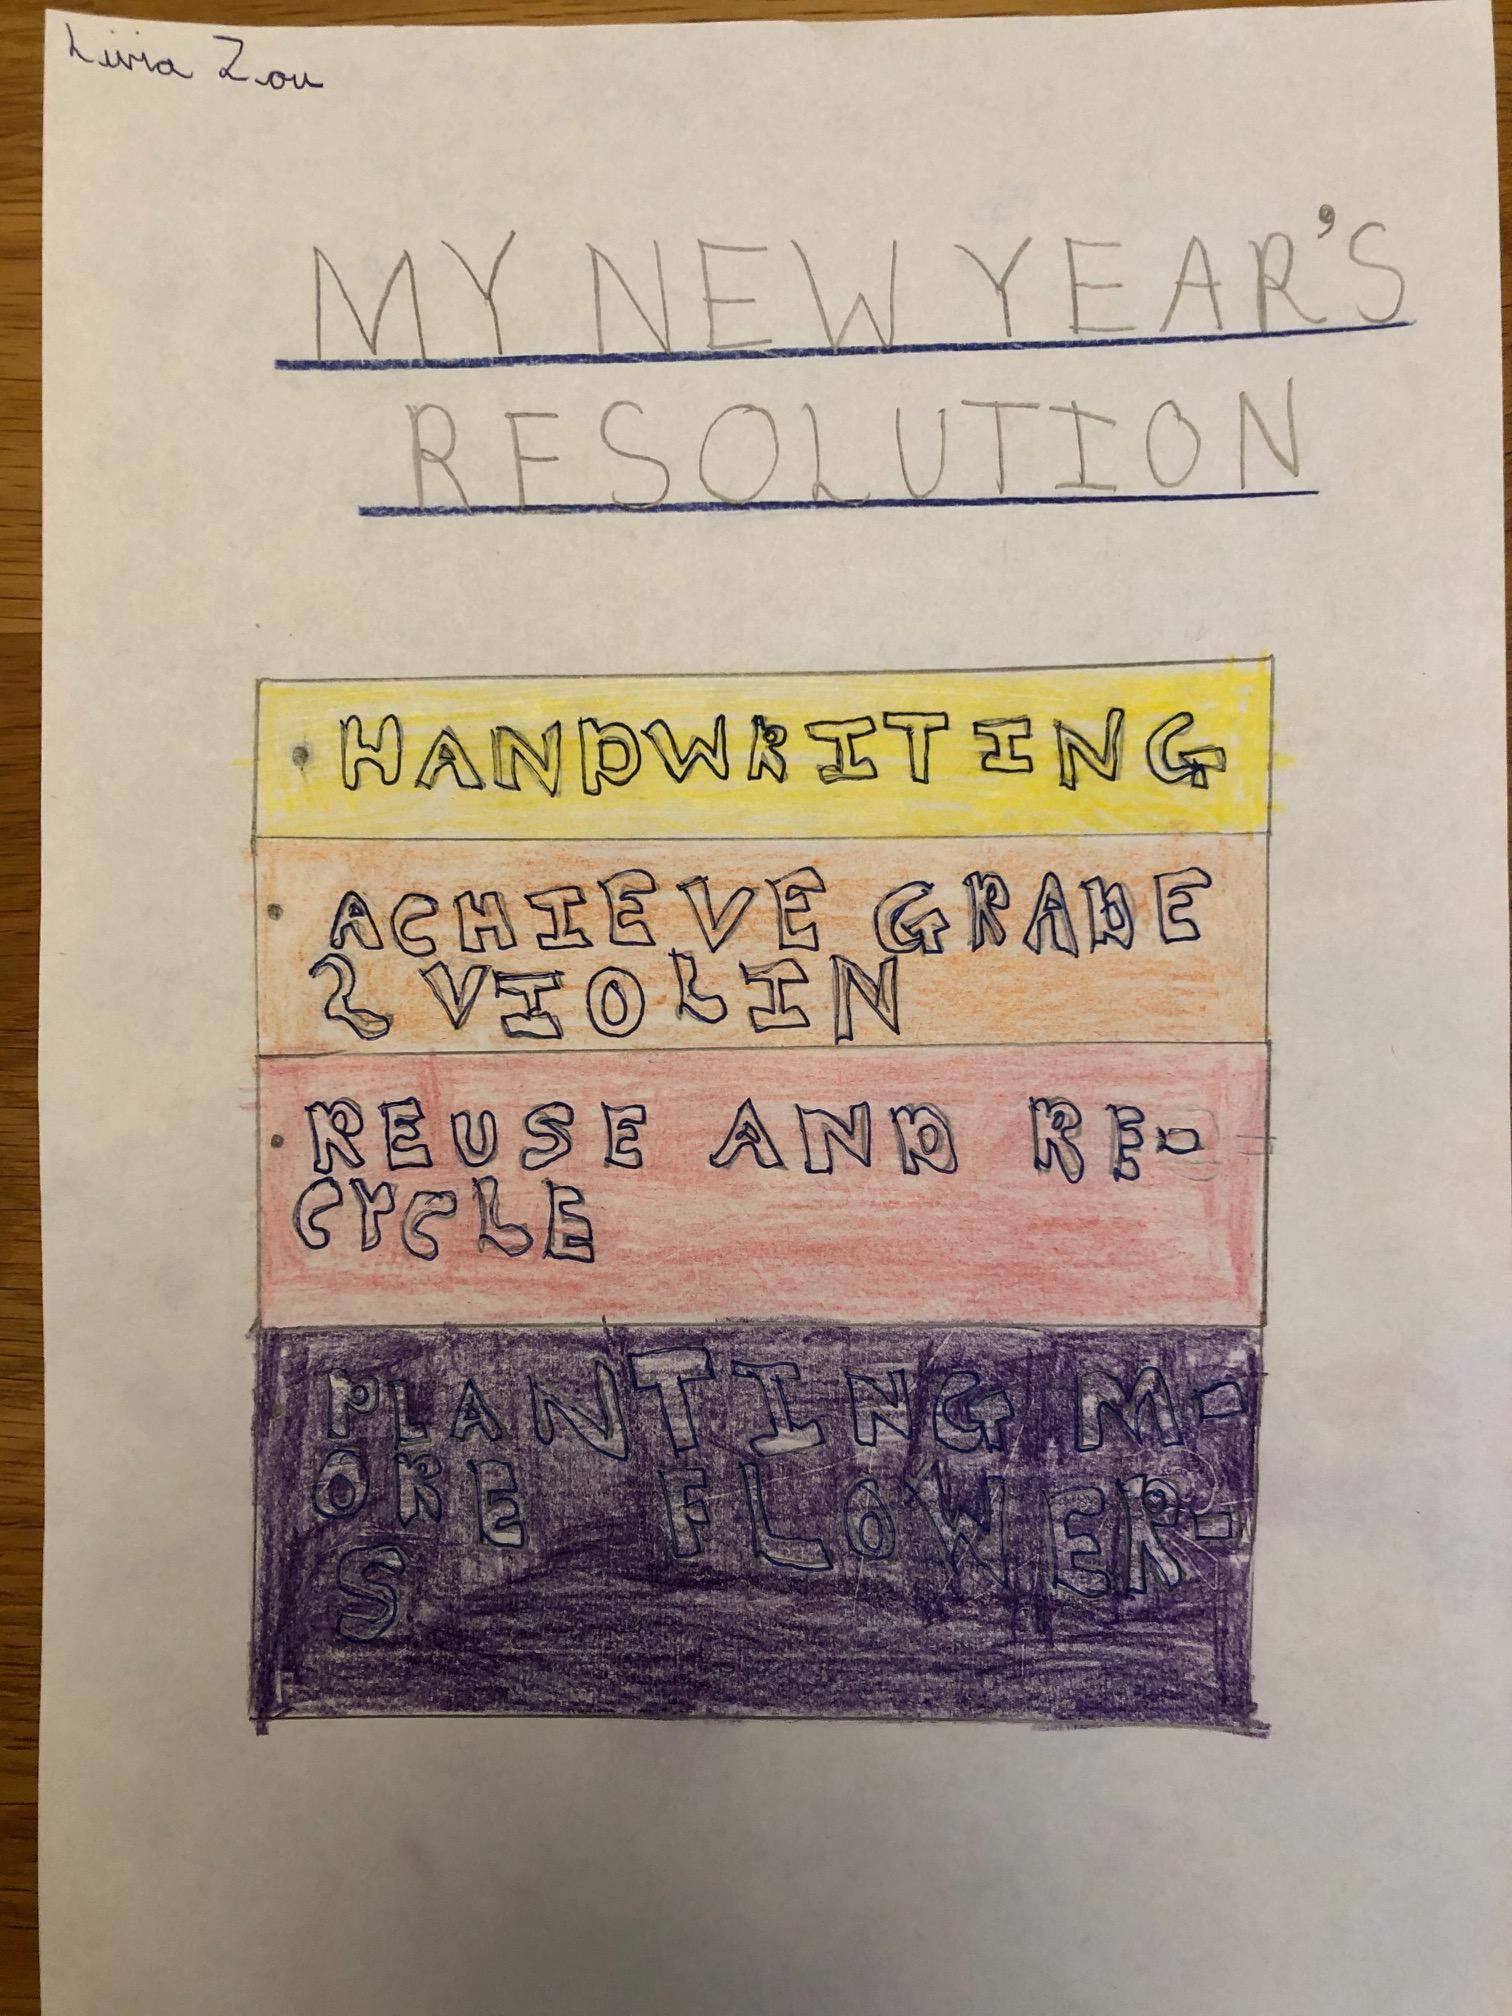 Livia Zou
MY NEW YEAR'S
RESOLUTION
• HANDWRITING
• ACHIEVE GRADE
2 VIOLIN
• REUSE AND RE-
CYCLE
• PLANTING M-
ORE FLOWER-
S